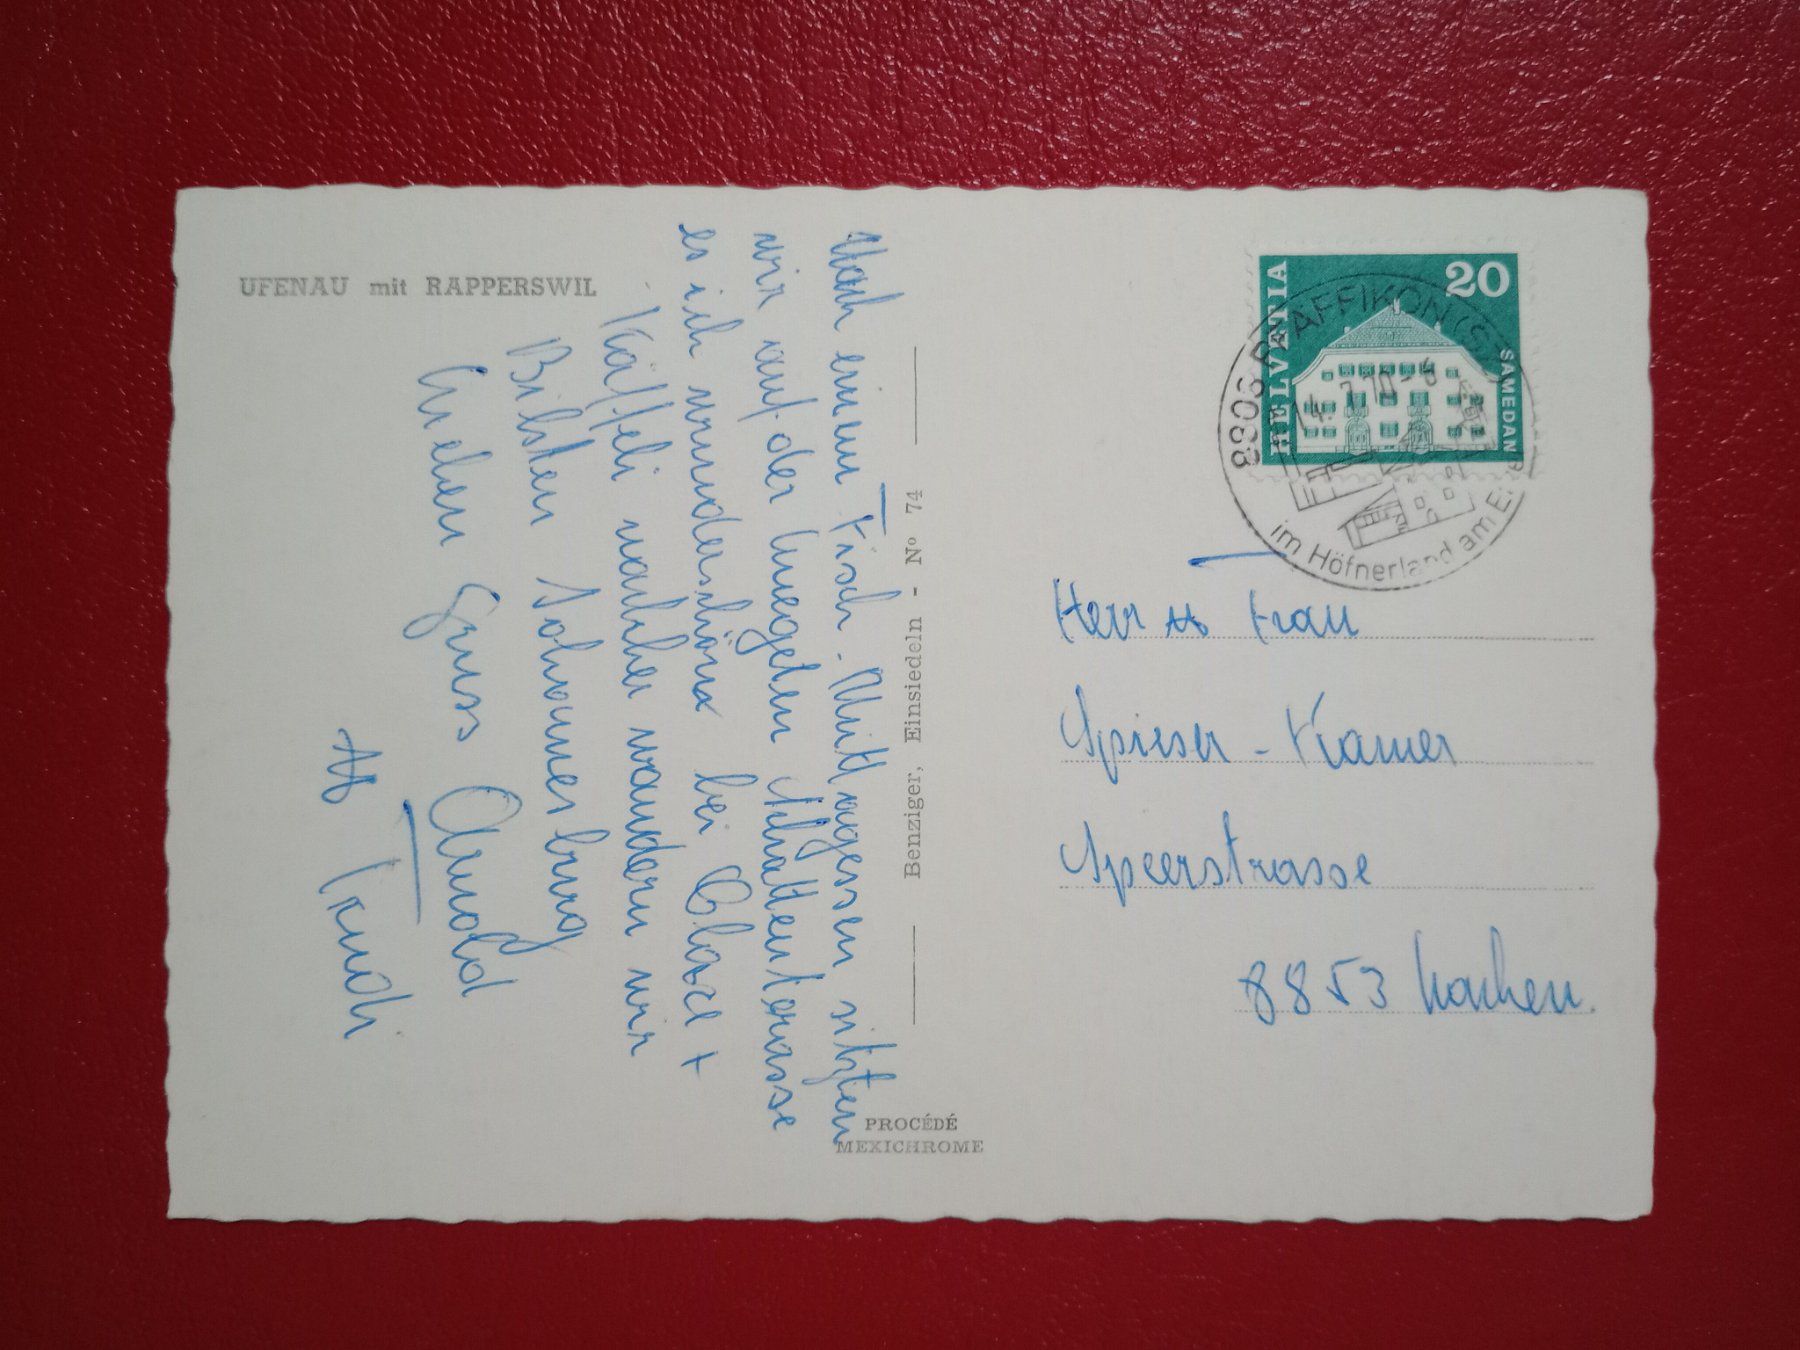 UFENAU mit RAPPERSWIL
Nach einem Fisch-Mittagessen sitzen
wir auf der Luegeten Schattenterasse
es ist wunderschön bei Glace +
Käffeli nachher wandern wir
Bilsten Johannesburg
Lieben Gruss Arnold
u. Trudi
Benziger, Einsiedeln - No 74
PROCÉDÉ
MEXICHROME
HELVETIA
20
SAMEDAN
8808 PFÄFFIKON (SZ)
70-
im Höfnerland am
Herr u. Frau
Spieser-Kamer
Speerstrasse
8853 Lachen.